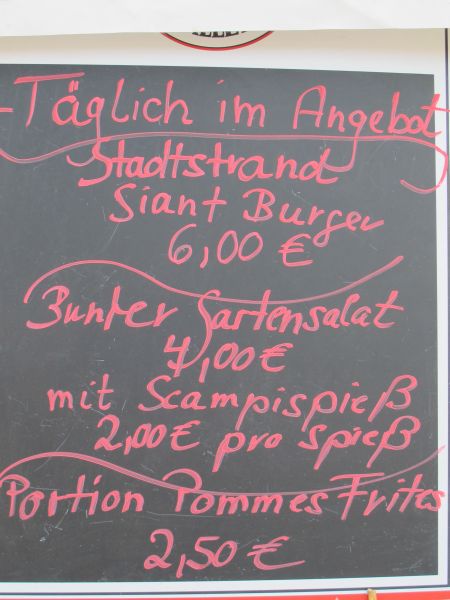 - Täglich im Angebot
Stadtstrand
Giant Burger
6,00 €
Bunter Gartensalat
4,00 €
mit Scampispieß
2,00 € pro Spieß
Portion Pommes Frites
2,50 €